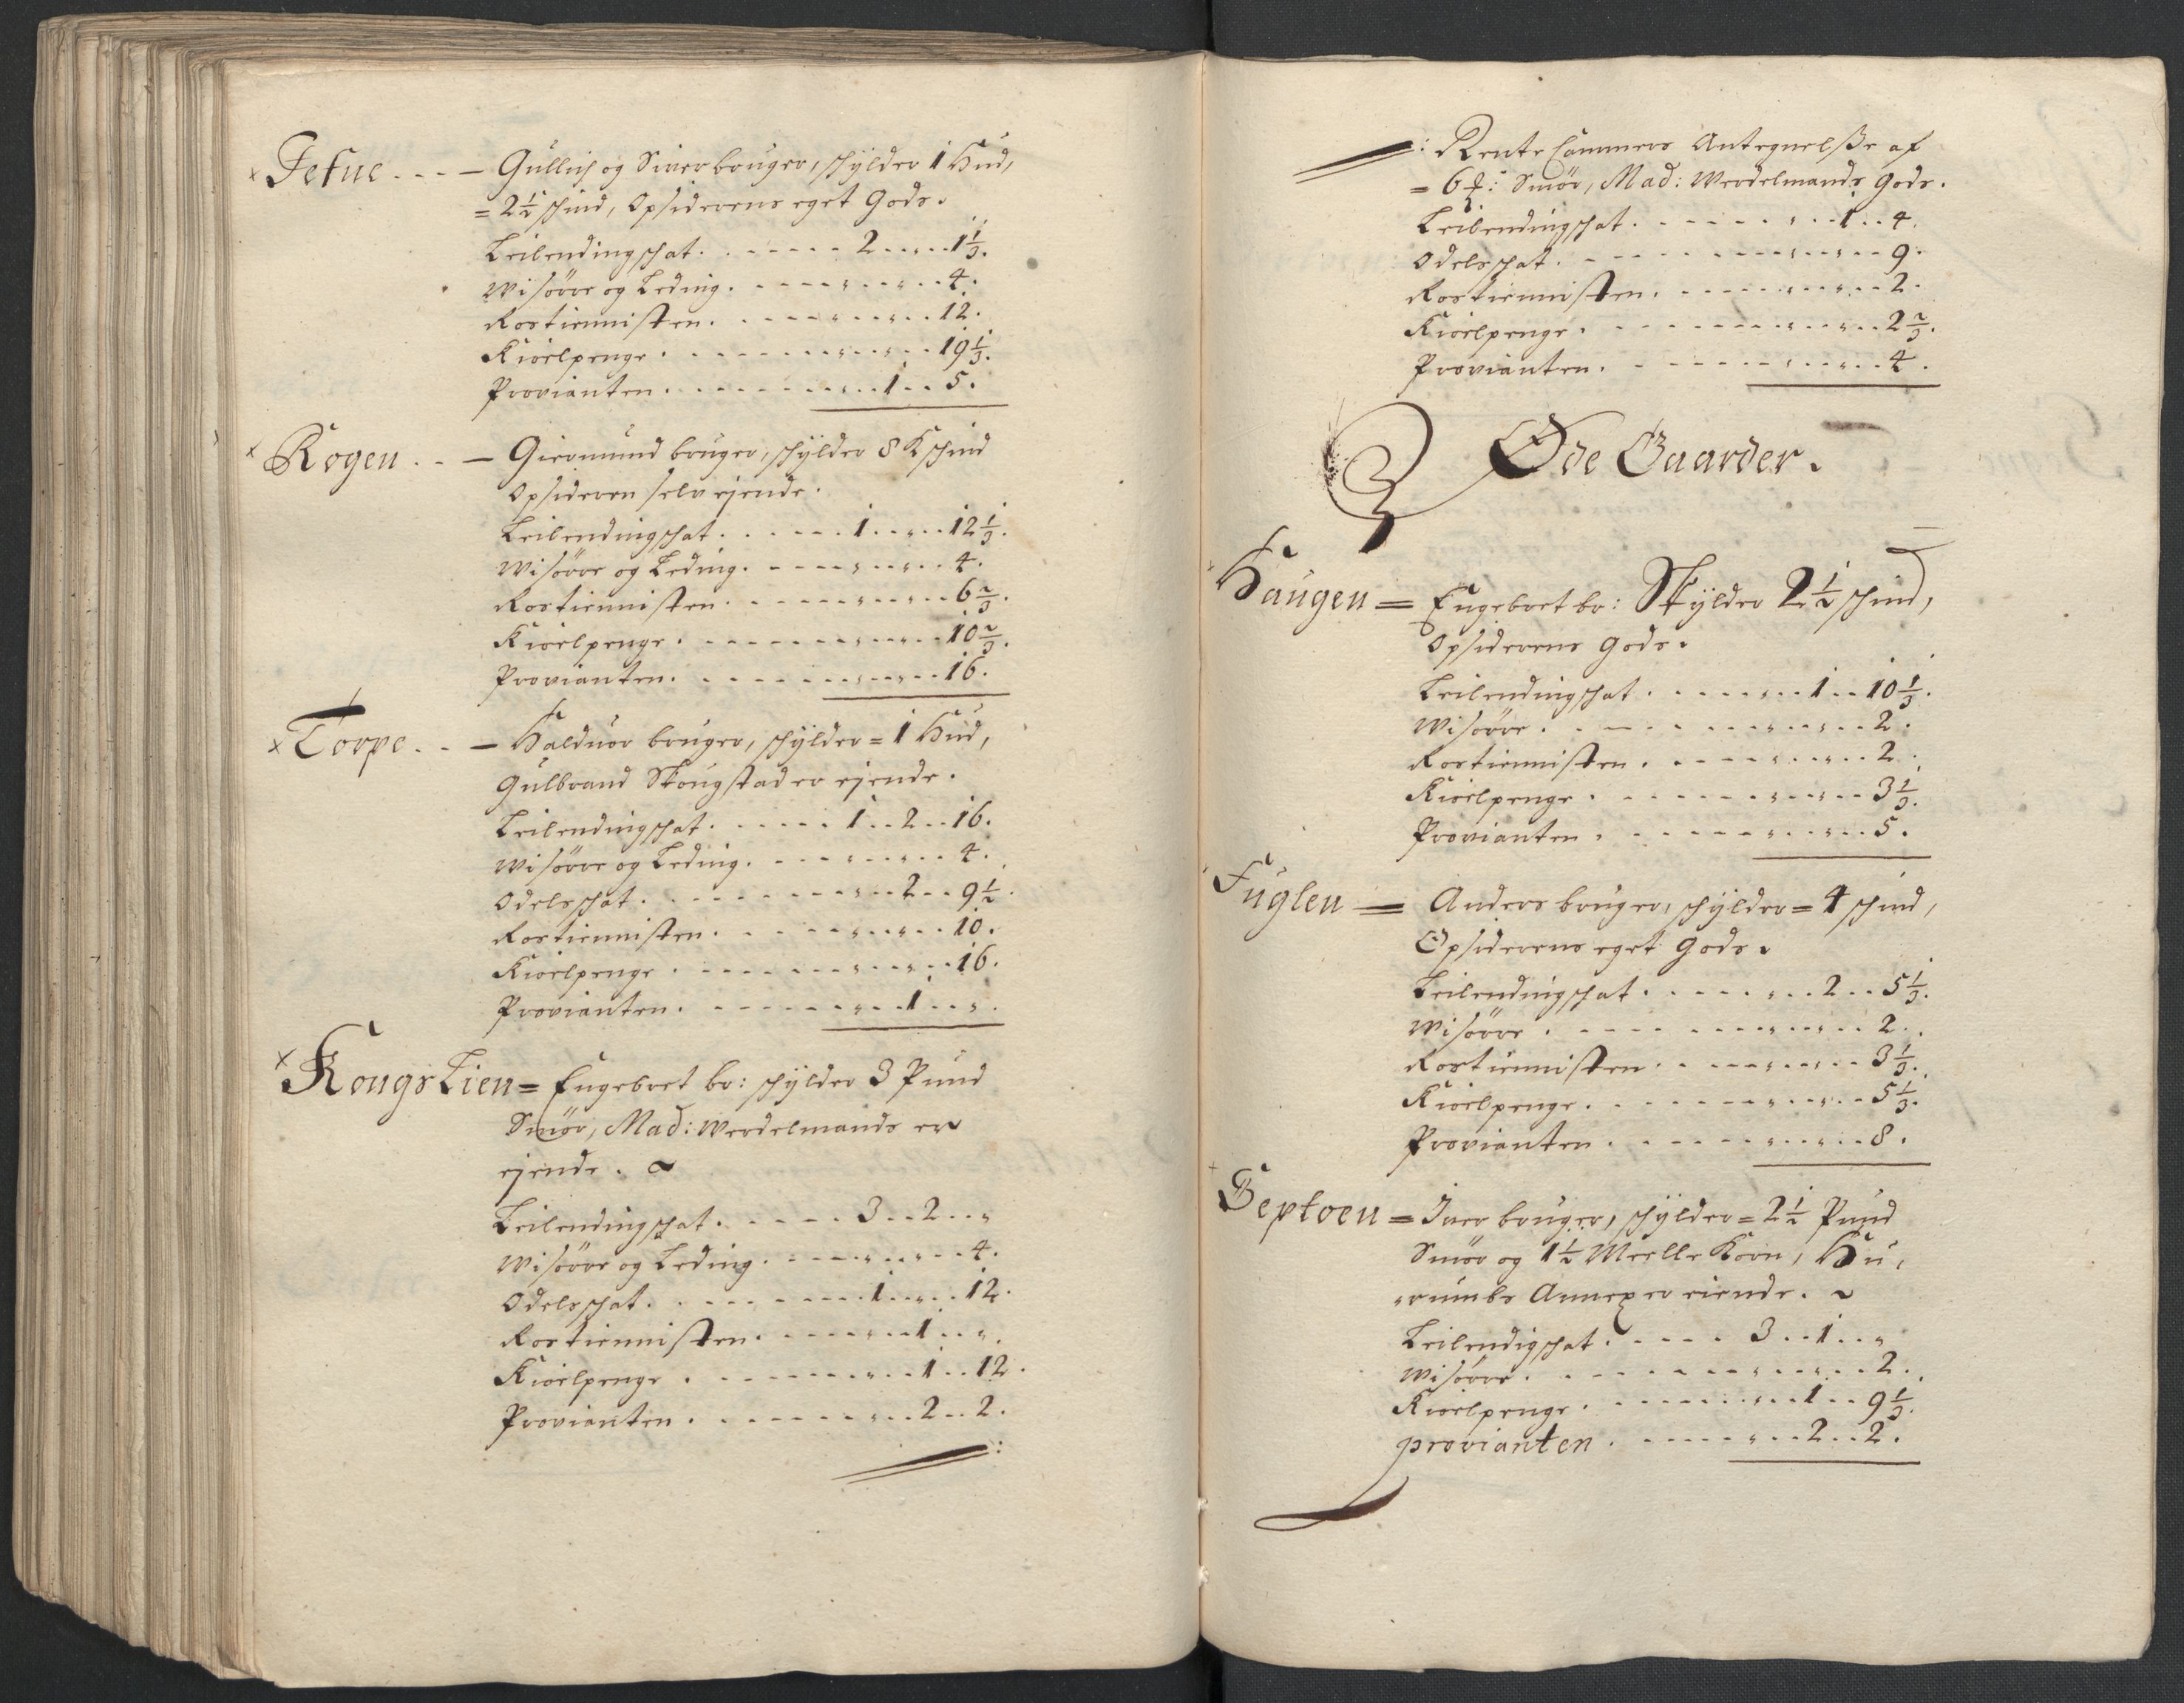 × Jefue . . . – Gullich og Siver bruger, schylder 1 Hud,
= 2½ schind, Opsiderens eget Gods.
Leilendingschat. . . . . . . 2 . . „ . . 1⅓.
Wisörre og Leding. . . . . . „ . . „ . . 4.
Rostiennisten. . . . . . „ . . „ . . 12.
Kiöelpenge. . . . . . . „ . . „ . . 19⅓.
Provianten. . . . . . . „ . . 1 . . 5.
× Rogen . . – Giermund bruger, schylder 8 K schind
Opsideren selv ejende.
Leilendingschat. . . . . . 1 . . „ . . 12⅓.
Wisörre og Leding. . . . . „ . . „ . . 4.
Rostiennisten. . . . . . „ . . „ . . 6⅔.
Kiöelpenge. . . . . . . „ . . „ . . 10⅔.
Provianten. . . . . . . „ . . „ . . 16.
× Torpe . . – Halduor bruger, schylder = 1 Hud,
Gulbrand Skougstad er ejende.
Leilendingschat. . . . . . 1 . . 2 . . 16.
Wisörre og Leding. . . . . „ . . „ . . 4.
Odelsschat. . . . . . . „ . . 2 . . 9½.
Rostiennisten. . . . . . „ . . „ . . 10.
Kiöelpenge. . . . . . . „ . . „ . . 16.
Provianten. . . . . . . „ . . 1 . . „.
× KongsLien = Engebret br: schylder 3 Pund
Smör, Mad: Werdelmands er
ejende.
Leilendingschat. . . . . 3 . . 2 . . „
Wisörre og Leding. . . . . „ . . „ . . 4.
Odelsschat. . . . . . . 1 . . „ . . 12.
Rostiennisten. . . . . . „ . . 1 . . „.
Kiöelpenge. . . . . . . „ . . 1 . . 12.
Provianten. . . . . . . „ . . 2 . . 2.
: Rente Cammers Antegnelsze af
= 6 : Smör, Mad: Werdelmands Gods.
Leilendingschat. . . . . . „ . . 1 . . 4.
Odelsschat. . . . . . . „ . . „ . . 9.
Rostiennisten. . . . . . „ . . „ . . 2.
Kiöelpenge. . . . . . . „ . . „ . . 2⅔.
Provianten. . . . . . . „ . . „ . . 4.
Øde Gaarder.
Haugen = Engebret br: Skylder 2½ schind,
Opsiderens Gods.
Leilendingschat. . . . . . „ . . 1 . . 10⅓.
Wisörre. . . . . . . „ . . „ . . 2.
Rostiennisten. . . . . . „ . . „ . . 2.
Kiöelpenge. . . . . . . „ . . „ . . 3⅓.
Provianten. . . . . . . „ . . „ . . 5.
Fuglen = Anders bruger, schylder = 4 schind,
Opsiderens eget Gods.
Leilendingschat. . . . . . „ . . 2 . . 5⅓.
Wisörre. . . . . . . „ . . „ . . 2.
Rostiennisten. . . . . . „ . . „ . . 3⅓.
Kiöelpenge. . . . . . . „ . . „ . . 5⅓.
Provianten. . . . . . . „ . . „ . . 8.
Geptoen = Iver bruger, schylder = 2½ Pund
Smör og 1½ Meelle Korn, Hu,
„rumbs Annex er eiende.
Leilendigschat. . . . . 3 . . 1 . . „
Wisörre. . . . . . . „ . . „ . . 2.
Kiöelpenge. . . . . . . „ . . 1 . . 9⅓.
provianten. . . . . . . „ . . 2 . . 2.